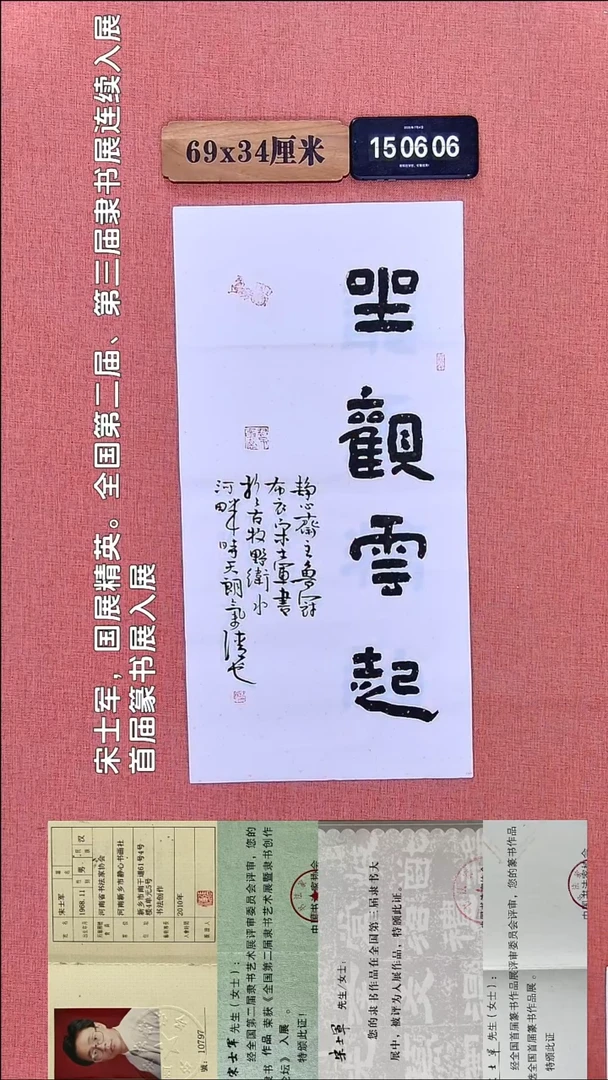 宋士军，国展精英。全国第二届、第三届隶书展连续入展
首届篆书展入展
69x34厘米
15 06 06
坐观云起
静心斋主鲁冠
布衣宋士军书
于古牧野卫水
河畔时天朗气清也
姓名 宋士军
1968.11 性别 男 民族 汉
河南省书法家协会
河南新乡市静心书画社
新乡市南干道61号4号
楼4单元5号
书法创作
2010年
号：10797
宋士军 先生（女士）：
经全国第二届隶书艺术展评审委员会评审，您的
隶书 作品 荣获《全国第二届隶书艺术展暨隶书创作
论坛》入展。
特颁此证！
宋士军 先生/女士：
您的隶书作品在全国第三届隶书大
展中，被评为入展作品，特颁此证。
士军 先生（女士）：
经全国首届篆书作品展评审委员会评审，您的篆书作品
全国首届篆书作品展。
特颁此证